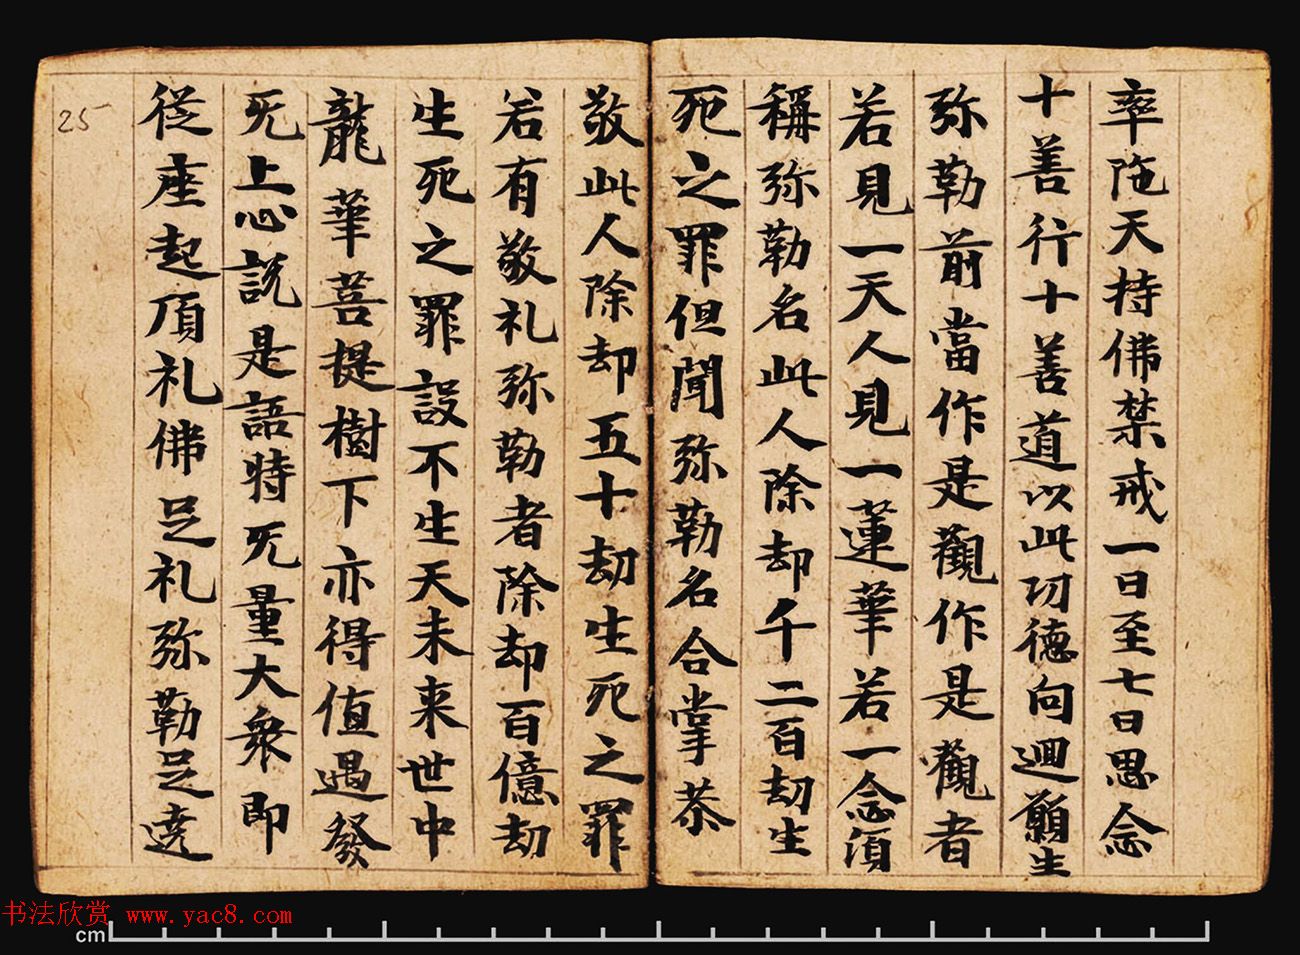 率陁天持佛禁戒一日至七日思念
十善行十善道以此功德向迴願生
弥勒前當作是觀作是觀者
若見一天人見一蓮華若一念須
稱弥勒名此人除却千二百劫生
死之罪但聞弥勒名合掌恭
敬此人除却五十劫生死之罪
若有敬礼弥勒者除却百億劫
生死之罪設不生天未来世中
龍華菩提樹下亦得值遇發
无上心說是語時无量大衆即
從座起頂礼佛足礼弥勒足遶
25
书法欣赏 www.yac8.com
cm